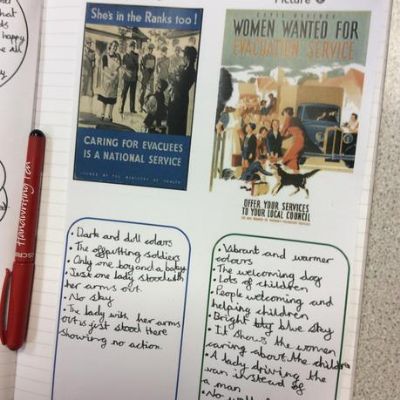 happy
Picture
She's in the Ranks too!
CARING FOR EVACUEES
IS A NATIONAL SERVICE
ISSUED BY THE MINISTRY OF HEALTH
CIVIL DEFENCE
WOMEN WANTED FOR
EVACUATION SERVICE
OFFER YOUR SERVICES
TO YOUR LOCAL COUNCIL
Handwriting Pen
• Dark and dull colours
• The offputting soldiers
• Only one boy and a baby
• Just one lady stood with
her arms out.
• No sky
• The lady with her arms
out is just stood there
showing no action.
• Vibrant and warmer
colours
• The welcoming dog
• Lots of children
• People welcoming and
helping children
• Bright blue sky
• It shows the women
caring about the children
• A lady driving the
van instead of
a man
• No